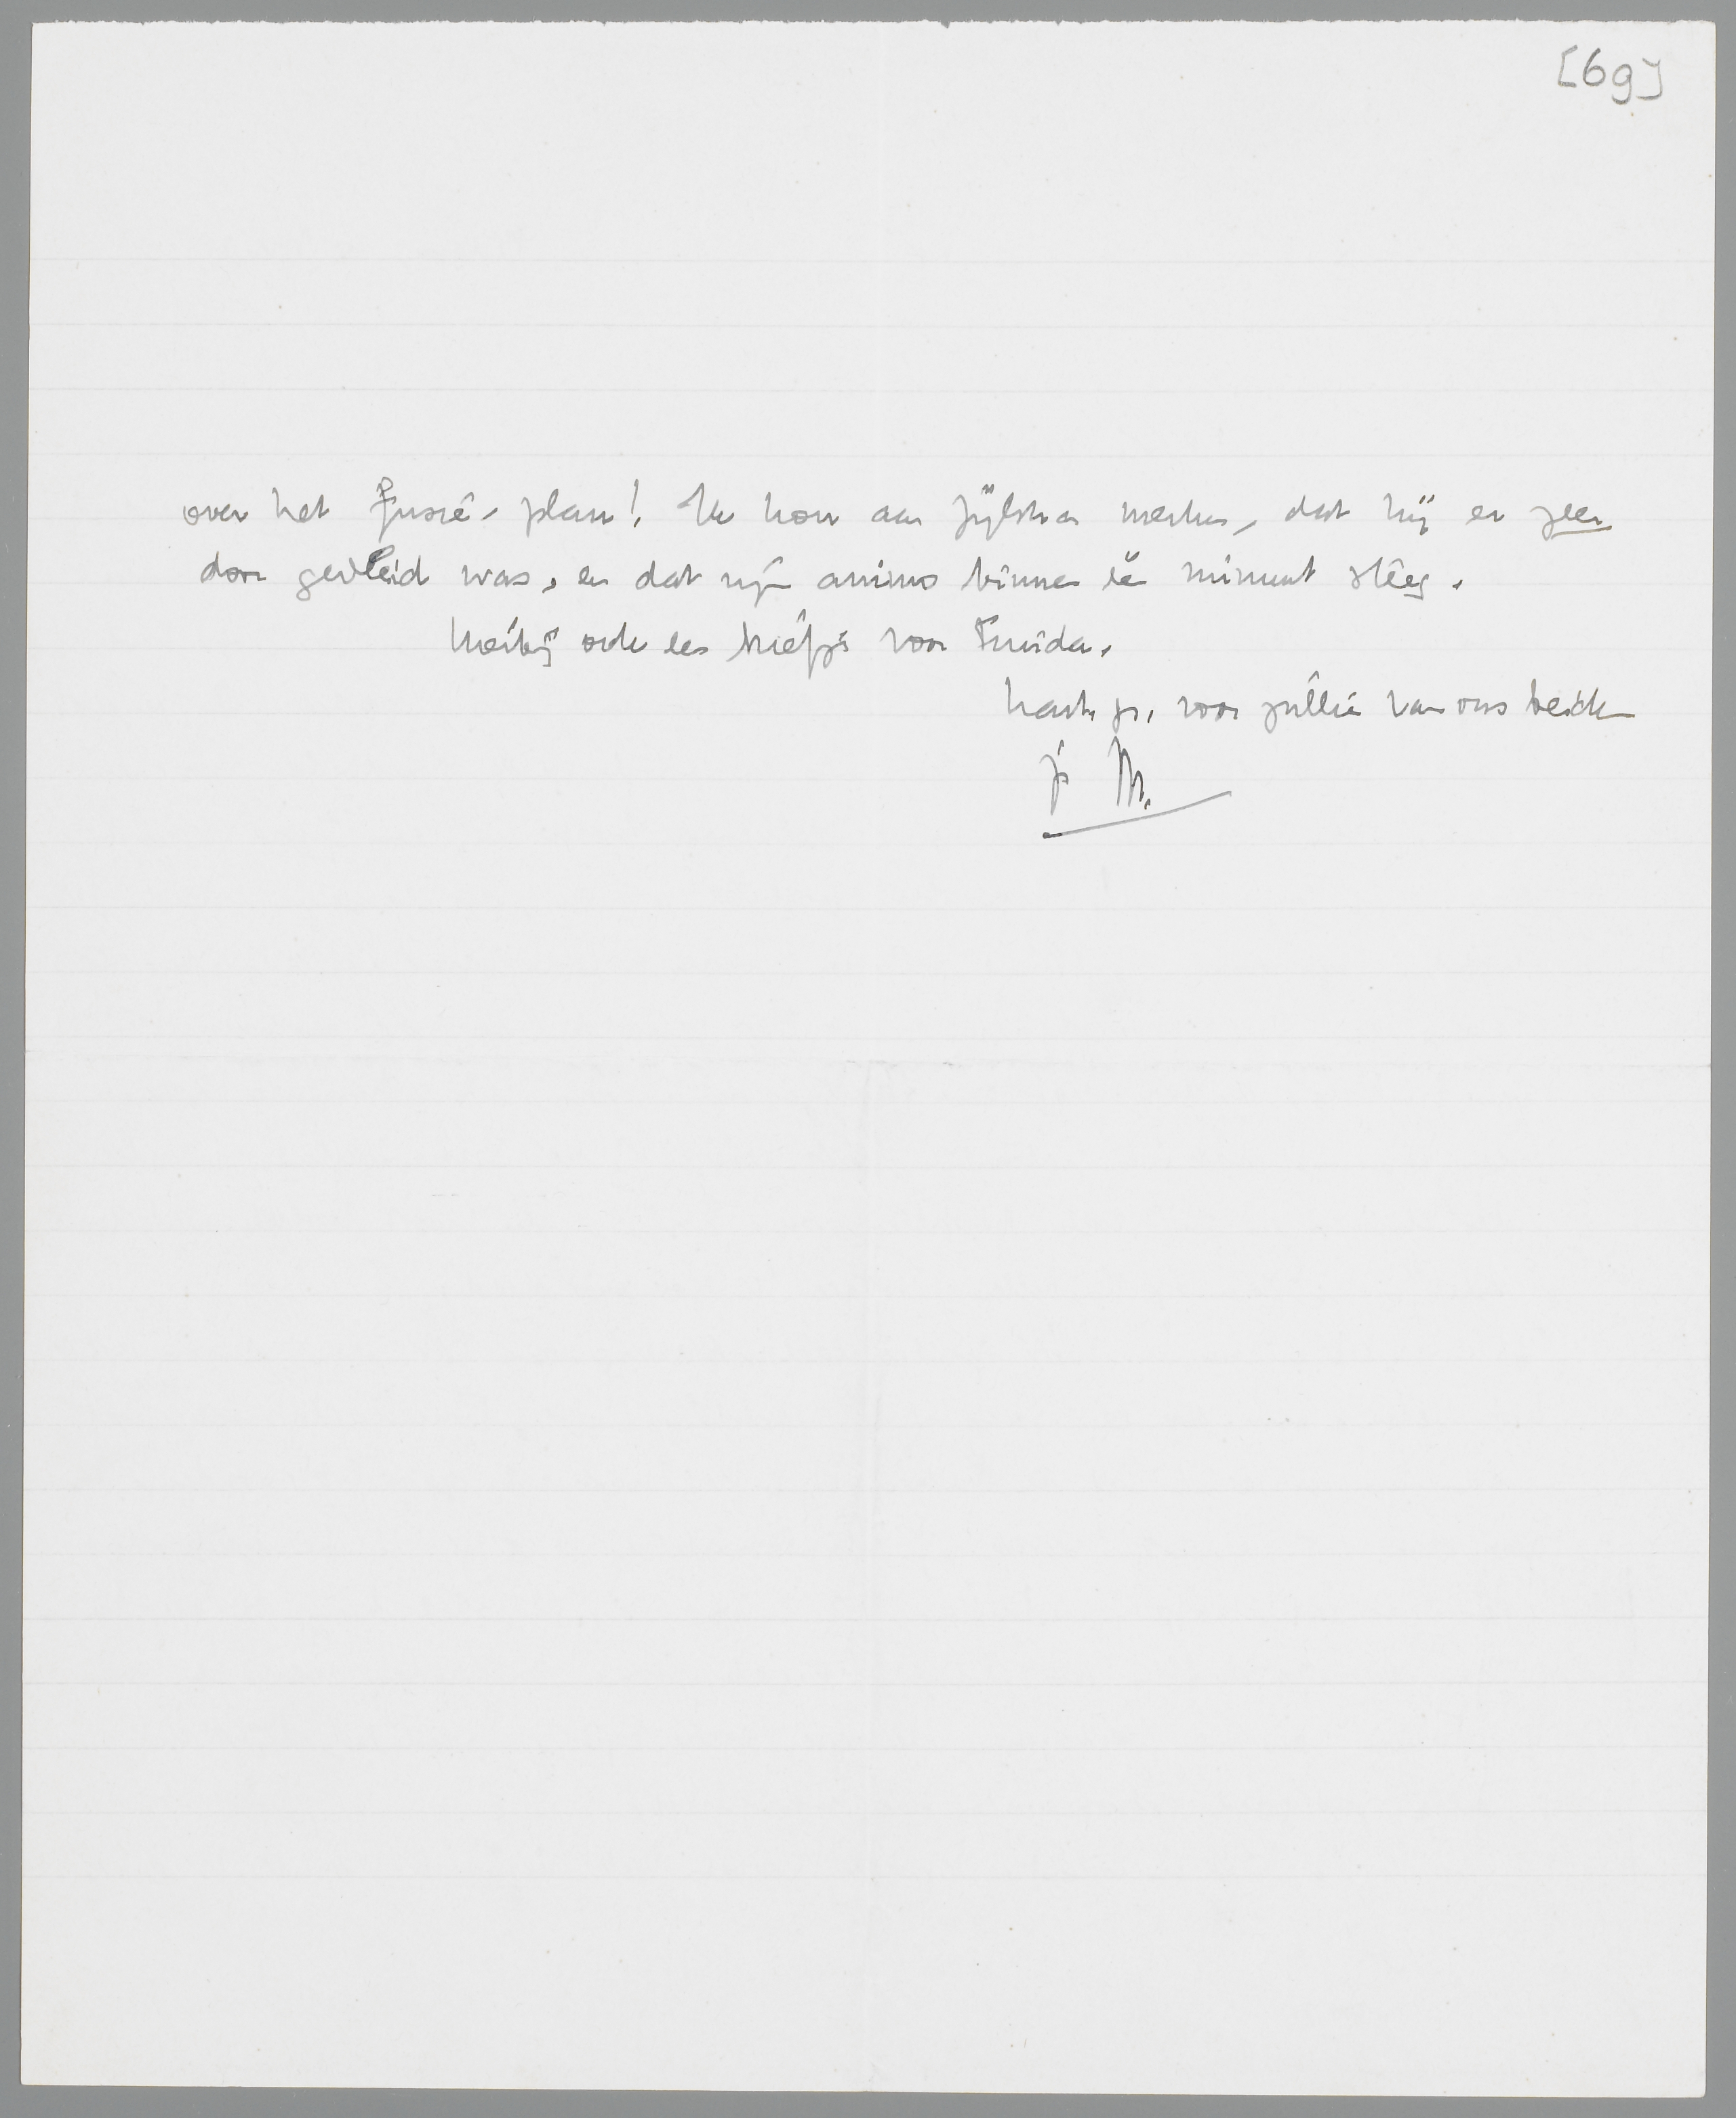 [69]
over het fusie-plan! Ik kon aan Zijlstra merken, dat hij er zeer
door gevleid was, en dat zijn animo binnen één minuut steeg.
Hierbij ook een briefje voor Truida.
Hart. gr. voor jullie van ons beiden
je M.